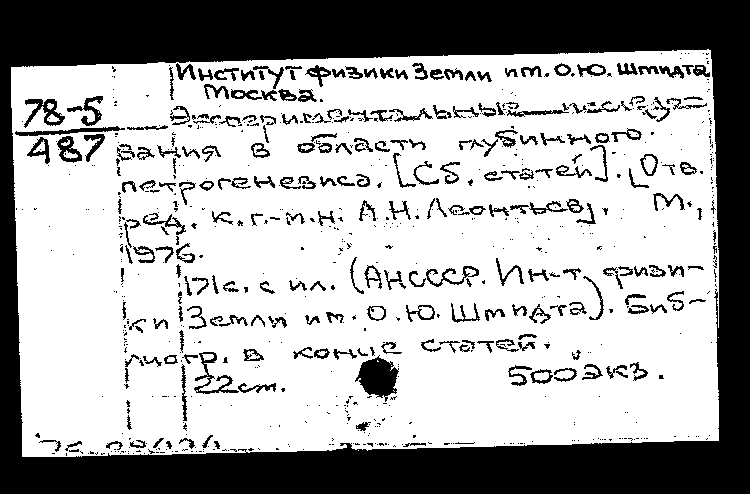 Институт физики Земли им. О.Ю. Шмидта
Москва.
78-5
487
Экспериментальные исследо-
вания в области глубинного
петрогенезиса. [Сб. статей]. [Отв.
ред. к.г.-м.н. А.Н. Леонтьев]. М.,
1976.
171с. с ил. (АН СССР. Ин-т физи-
ки Земли им. О.Ю. Шмидта). Биб-
лиогр. в конце статей.
22см. 500 экз.